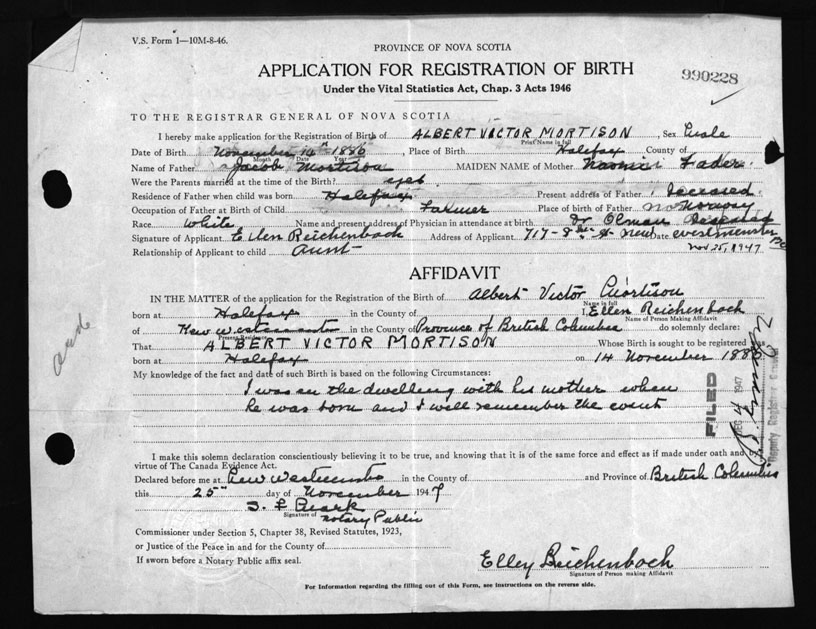 V.S. Form 1—10M-8-46.
PROVINCE OF NOVA SCOTIA
APPLICATION FOR REGISTRATION OF BIRTH
990228
Under the Vital Statistics Act, Chap. 3 Acts 1946
TO THE REGISTRAR GENERAL OF NOVA SCOTIA
I hereby make application for the Registration of Birth of ALBERT VICTOR MORTISON, Sex Male
Print Name in full
Date of Birth November 14th 1886, Place of Birth Halifax County of
Month Date Year
Name of Father Jacob Mortison MAIDEN NAME of Mother Fader
Were the Parents married at the time of the Birth? yes
Residence of Father when child was born Halifax Present address of Father Deceased
Occupation of Father at Birth of Child Farmer Place of birth of Father Norway
Race White Name and present address of Physician in attendance at birth Dr Olman Deceased
Signature of Applicant Ellen Reichenbach Address of Applicant 717-8th St New Westminster Date
Nov 25, 1947
Relationship of Applicant to child Aunt
AFFIDAVIT
IN THE MATTER of the application for the Registration of the Birth of Albert Victor Mortison
Name in full
born at Halifax in the County of I, Ellen Reichenbach
Name of Person Making Affidavit
of New Westminster in the County of Province of British Columbia do solemnly declare:
Present Residence
That ALBERT VICTOR MORTISON Whose Birth is sought to be registered was
born at Halifax on 14 November 1886
My knowledge of the fact and date of such Birth is based on the following Circumstances:
I was in the dwelling with his mother when
he was born and I well remember the event
FILED
DEC 4 1947
Deputy Registrar General
I make this solemn declaration conscientiously believing it to be true, and knowing that it is of the same force and effect as if made under oath and by
virtue of The Canada Evidence Act.
Declared before me at New Westminster in the County of and Province of British Columbia
this 25th day of November 1947
Signature of Notary Public
Commissioner under Section 5, Chapter 38, Revised Statutes, 1923,
or Justice of the Peace in and for the County of
If sworn before a Notary Public affix seal.
Ellen Reichenbach
Signature of Person making Affidavit
For Information regarding the filling out of this Form, see instructions on the reverse side.